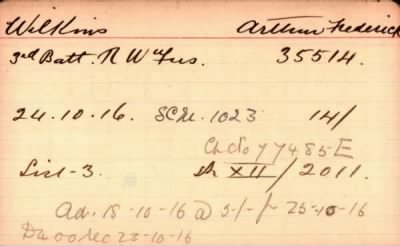 Wilkins Arthur Frederick
3rd Batt. R Wh Fus. 35514.
24.10.16. SCN. 1023 14/
77485E
List-3. XII / 2011.
Ad. 18-10-16 @ 5/- 25-10-16
23-10-16